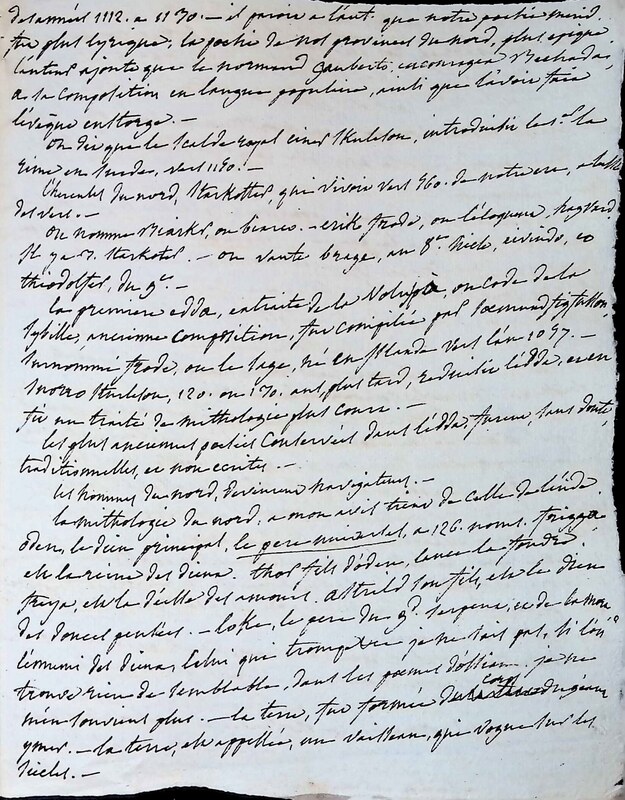 des années 1112. a 1130. — il paroit a l'aut. que notre poesie merid.
fut plus lyrique, la poesie de nos provinces du nord, plus epique
l'auteur ajoute que le normand gauberts encouragea Bechada,
a la composition en langue populaire, ainsi que l'avoit fait
l'évêque eustorge. —
on dit que le scalde royal einar skuleson, introduisit le 1er la
rime en suede, vers 1150. —
l'hercules du nord, Starkotter, qui vivoit vers 360. de notre ere, a laissé
des vers. —
on nomme Biarks, ou biarco. — erik frode, ou l'éloquent,
il y a 3. Starkoter. — on vante brage, au 8me siecle, eivindo, et
theodolfes, du 9e. —
la premiere edda, extraite de la Voluspa, ou code de la
Sybille, ancienne composition, fut compilée par Soemund sigfusson
surnommé frode, ou le sage, né en Islande vers l'an 1057. —
snorro sturleson, 120. ou 130. ans, plus tard, reduisit l'edda, et en
fit un traité de mithologie plus court. —
les plus anciennes poesies conservées dans l'edda, furent, sans doute,
traditionnelles, et non ecrites. —
les hommes du nord, devinrent navigateurs. —
la mithologie du nord, a mon avis tient de celle de l'inde
oden, le dieu principal, le pere universel, a 126. noms. frigga
est la reine des dieux. thor fils d'oden, lance la foudre.
freya, est la déesse des amours. astrild son fils, est le dieu
des douces pensées. — loke, le pere du gd. serpent, et de la mort
l'ennemi des dieux, celui qui trompe je ne sais pas, si l'on
trouve rien de semblable, dans les poemes d'ossian. je ne
m'en souviens plus. — la terre, fut formée du corps du géant
ymer. — la terre, est appellée, un vaisseau, qui vogue sur les
siecles. —